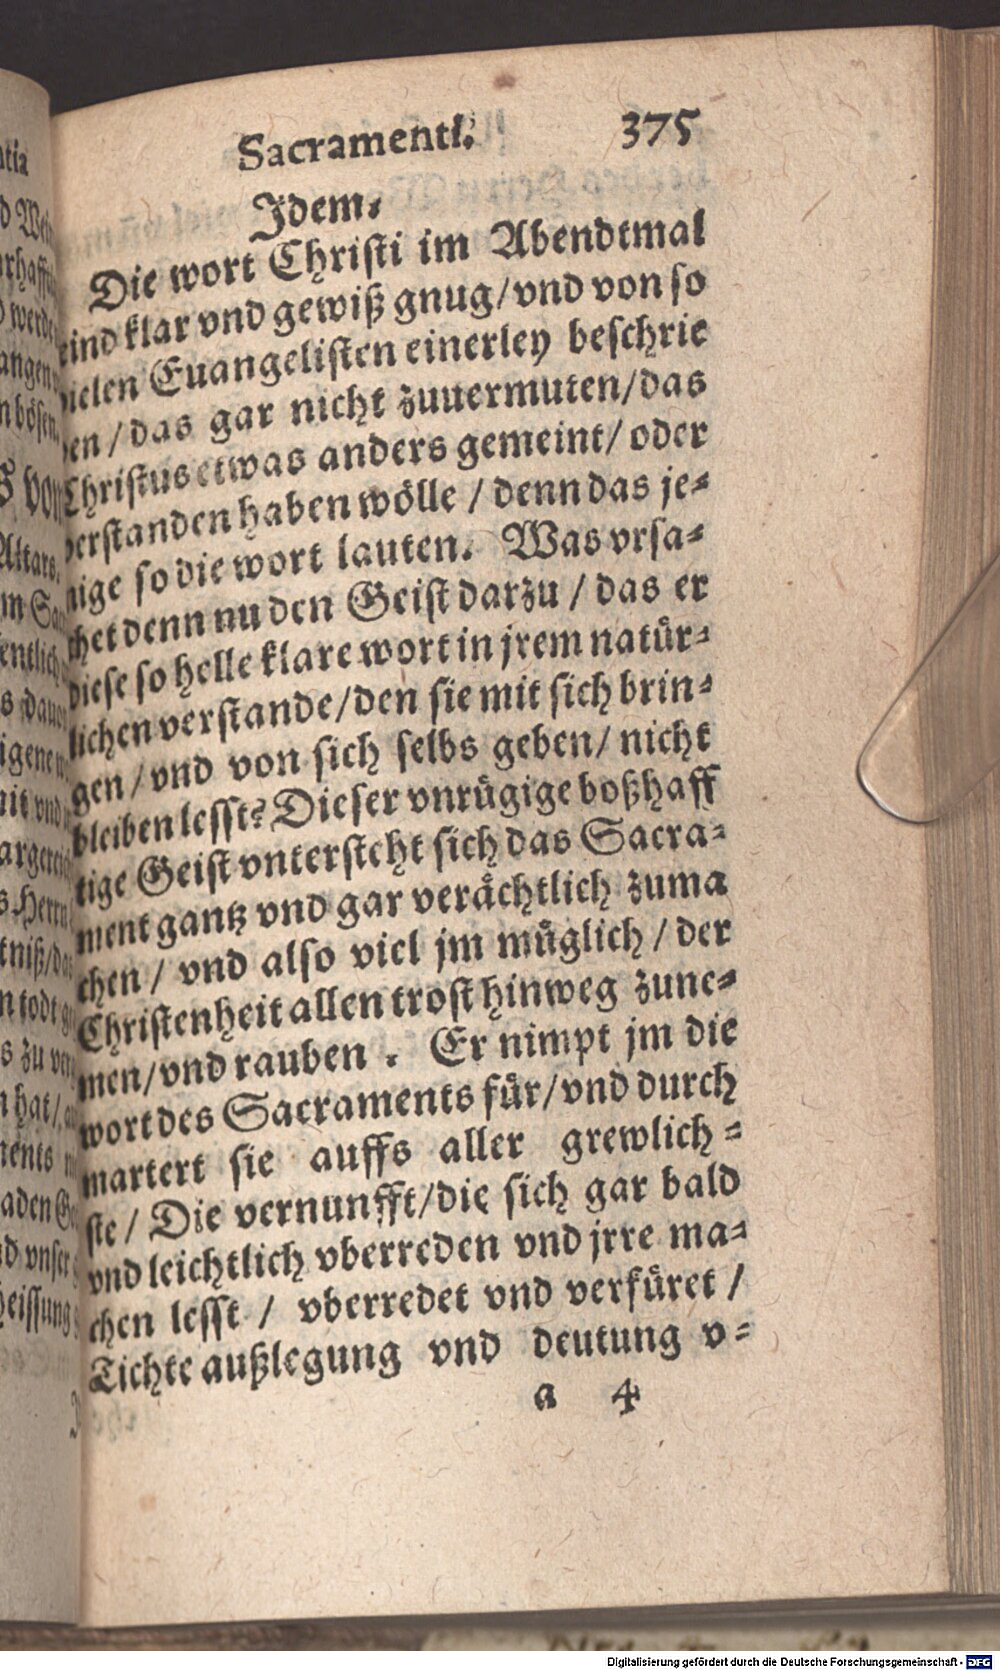 Sacramentl. 375
Idem.
Die wort Christi im Abendtmal
sind klar vnd gewiß gnug/vnd von so
vielen Euangelisten einerley beschrie
ben/das gar nicht zuuermuten/das
Christus etwas anders gemeint/oder
verstanden haben wölle/denn das je-
nige so die wort lauten. Was vrsa-
chet denn nu den Geist darzu/das er
diese so helle klare wort in jrem natür-
lichen verstande/den sie mit sich brin-
gen/vnd von sich selbs geben/nicht
bleiben lesst? Dieser vnrügige boßhaff
tige Geist vntersteht sich das Sacra-
ment gantz vnd gar verächtlich zuma
chen/vnd also viel jm müglich/der
Christenheit allen trost hinweg zune-
men/vnd rauben. Er nimpt jm die
wort des Sacraments für/vnd durch
martert sie auffs aller grewlich-
ste/Die vernunfft/die sich gar bald
vnd leichtlich vberreden vnd jrre ma-
chen lesst/vberredet vnd verfüret/
Tichte außlegung vnd deutung v-
a 4
Digitalisierung gefördert durch die Deutsche Forschungsgemeinschaft - DFG